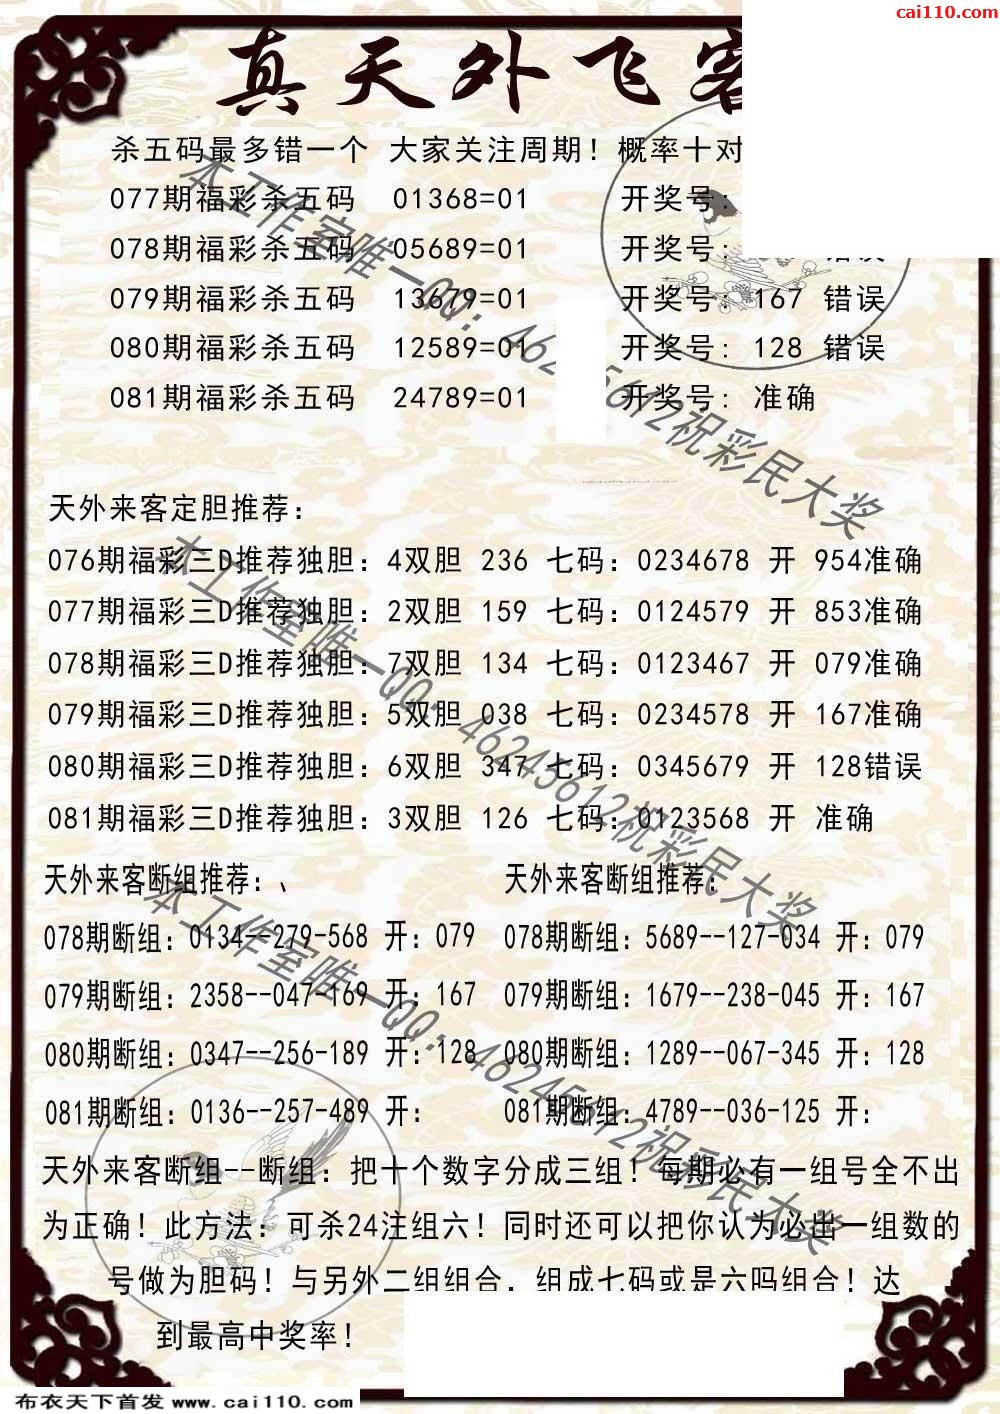 cai110.com
真天外飞客
杀五码最多错一个 大家关注周期！概率十对
077期福彩杀五码 01368=01 开奖号:
078期福彩杀五码 05689=01 开奖号: 错误
079期福彩杀五码 13679=01 开奖号: 167 错误
080期福彩杀五码 12589=01 开奖号: 128 错误
081期福彩杀五码 24789=01 开奖号: 准确
本工作室唯一QQ: 46245612祝彩民大奖
天外来客定胆推荐:
076期福彩三D推荐独胆: 4双胆 236 七码: 0234678 开 954准确
077期福彩三D推荐独胆: 2双胆 159 七码: 0124579 开 853准确
078期福彩三D推荐独胆: 7双胆 134 七码: 0123467 开 079准确
079期福彩三D推荐独胆: 5双胆 038 七码: 0234578 开 167准确
080期福彩三D推荐独胆: 6双胆 347 七码: 0345679 开 128错误
081期福彩三D推荐独胆: 3双胆 126 七码: 0123568 开 准确
本工作室唯一QQ: 46245612祝彩民大奖
天外来客断组推荐:、 天外来客断组推荐:
078期断组: 0134--279-568 开: 079 078期断组: 5689--127-034 开: 079
079期断组: 2358--047-169 开: 167 079期断组: 1679--238-045 开: 167
080期断组: 0347--256-189 开: 128 080期断组: 1289--067-345 开: 128
081期断组: 0136--257-489 开: 081期断组: 4789--036-125 开:
本工作室唯一QQ: 46245612祝彩民大奖
天外来客断组--断组: 把十个数字分成三组！每期必有一组号全不出
为正确！此方法: 可杀24注组六！同时还可以把你认为必出一组数的
号做为胆码！与另外二组组合，组成七码或是六吗组合！达
到最高中奖率！
布衣天下首发 www.cai110.com